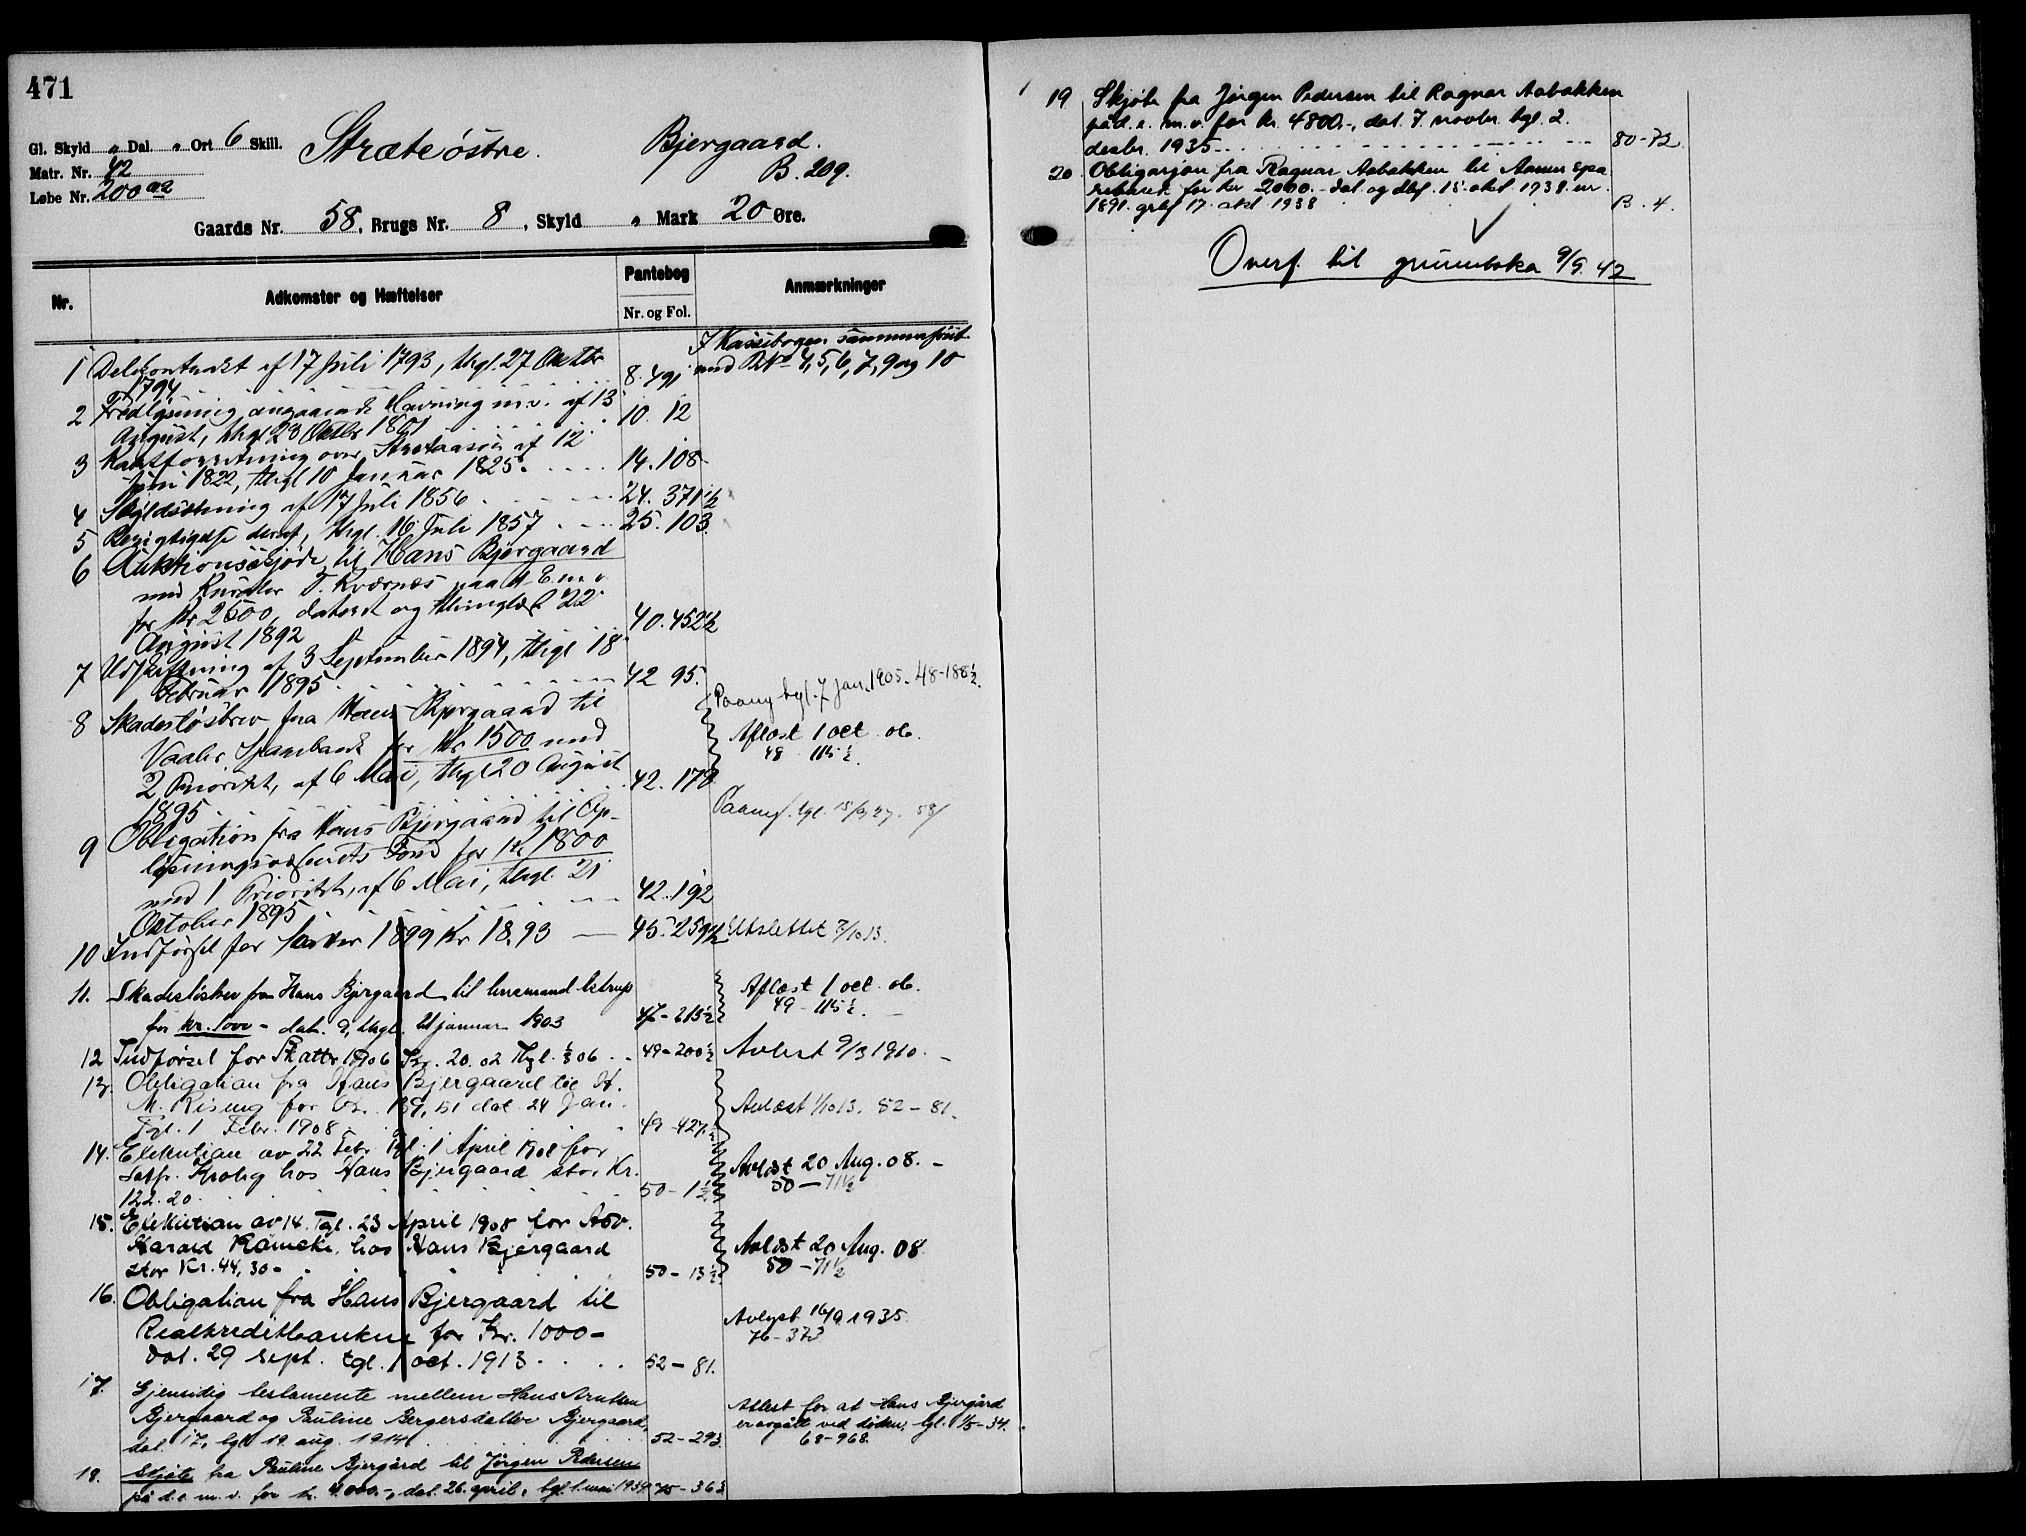 471
Gl. Skyld „ Dal. „ Ort 6 Skill.
Matr. Nr. 42
Løbe Nr. 200 a2
Stræte østre.
Bjergaard.
B. 209.
Gaards Nr. 58, Brugs Nr. 8, Skyld „ Mark 20 Øre.
Nr. Adkomster og Hæftelser Pantebog Nr. og Fol. Anmærkninger
1 Delekontrakt af 17 Juli 1793, thgl. 27 Oktbr
1794 8. 491
med BNo 4, 5, 6, 7, 9 og 10
2 Fredlysning angaaende Havning m.v. af 13
August, thgl 28 Oktbr 1801 10. 12
3 over af 12
Juni 1822, thgl 10 Januar 1825. 14. 108
4 Skyldsætning af 17 Juli 1856 24. 371½
5 Berigtigelse deraf, thgl. 16 Juli 1857 25. 103.
6 Auktionsskjøde til Hans Bjergaard
med Kurator T. Kværnæs paa d. E. m v
for Kr 2500, dateret og thinglæst 22
August 1892 40. 452½
7 Udskiftning af 3 September 1894, thgl 18
Februar 1895 42 95.
8 Skadesløsbrev fra Hans Bjergaard til
Vaaler Sparebank for Kr 1500 med
2 Prioritet, af 6 Mai, thgl 20 August
1895 42. 178
Paateg. tgl. 7 jan. 1905. 48-188½.
Aflæst 1 oct. 06.
49 115½.
9 Obligation fra Hans Bjergaard til Op-
lysningsvæsenets Fond for Kr 1800
med 1 Prioritet, af 6 Mai, thgl. 21
Oktober 1895 42. 192
10 Indførsel for 1899 Kr 18.93 45. 259½ Utslettet 7/10 13.
11. Skadesløsbrev fra Hans Bjergaard til lensmand Astrup
for kr. 1000 - dat. 9, thgl. 21 januar 1903 47-213½
Aflæst 1 oct. 06.
49 - 115½.
12 Indførsel for Skatter 1906 Kr. 20.02 Tgl. 1/3 06 49-200½ Avlest 9/3 1910.
13. Obligation fra Hans Bjergaard til H.
M. Rising for Kr. 139,51 dat. 24 Jan.
Tgl. 1 Febr. 1908 49-427½
Avlæst 1/10 13. 52 - 81.
14. Exekution av 22 Febr tgl. 1 April 1908 for
hos Hans Bjergaard stor Kr.
122.20. 50 - 1½
Avlæst 20 Aug. 08.
50 - 71½
15. Exekution av 14. Tgl. 23 April 1908 for Adv.
Harald hos Hans Bjergaard
stor Kr. 44,30. 50 - 13½.
Avlæst 20 Aug. 08.
50 - 71½
16. Obligation fra Hans Bjergaard til
Realkreditbanken for Kr. 1000-
dat. 29 sept. tgl. 1 oct. 1913. 52 - 81.
Avlyst 16/9 1935.
76-373
17. Gjensidig testamente mellem Hans Arntsen
Bjergaard og Pauline Bergersdatter Bjergaard,
dat. 17, tgl. 19. aug. 1914 52-293.
Attest for at Hans Bjergård
er avgått ved døden, tgl. 1/5-34.
68-968.
18. Skjøte fra Pauline Bjergård til Jørgen Pedersen
på d.e. m.v. for kr. 4.000.-, dat. 26. april, tgl. 1. mai 1934. 75-363.
19 Skjøte fra Jørgen Pedersen til Ragnar Aabakken
på d.e. m.v. for kr. 4800.-, dat. 7. novbr. tgl. 2.
desbr. 1935 80-72.
20. Obligasjon fra Ragnar Aabakken til Aames Spa
rebank for kr 2000.- dat. og dbf. 15. okt. 1938. nr.
1891. grbf 17. okt 1938 B. 4.
Overf. til grunnboka 9/9. 42